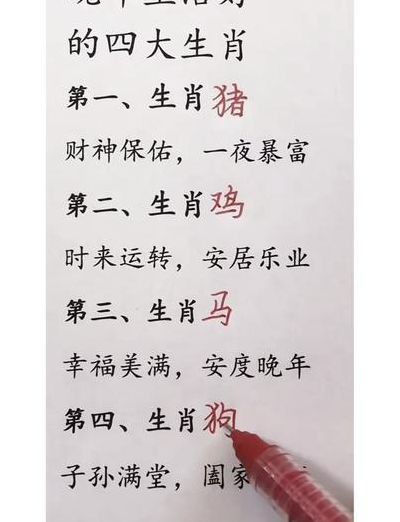 的四大生肖
第一、生肖猪
财神保佑，一夜暴富
第二、生肖鸡
时来运转，安居乐业
第三、生肖马
幸福美满，安度晚年
第四、生肖狗
子孙满堂，阖家